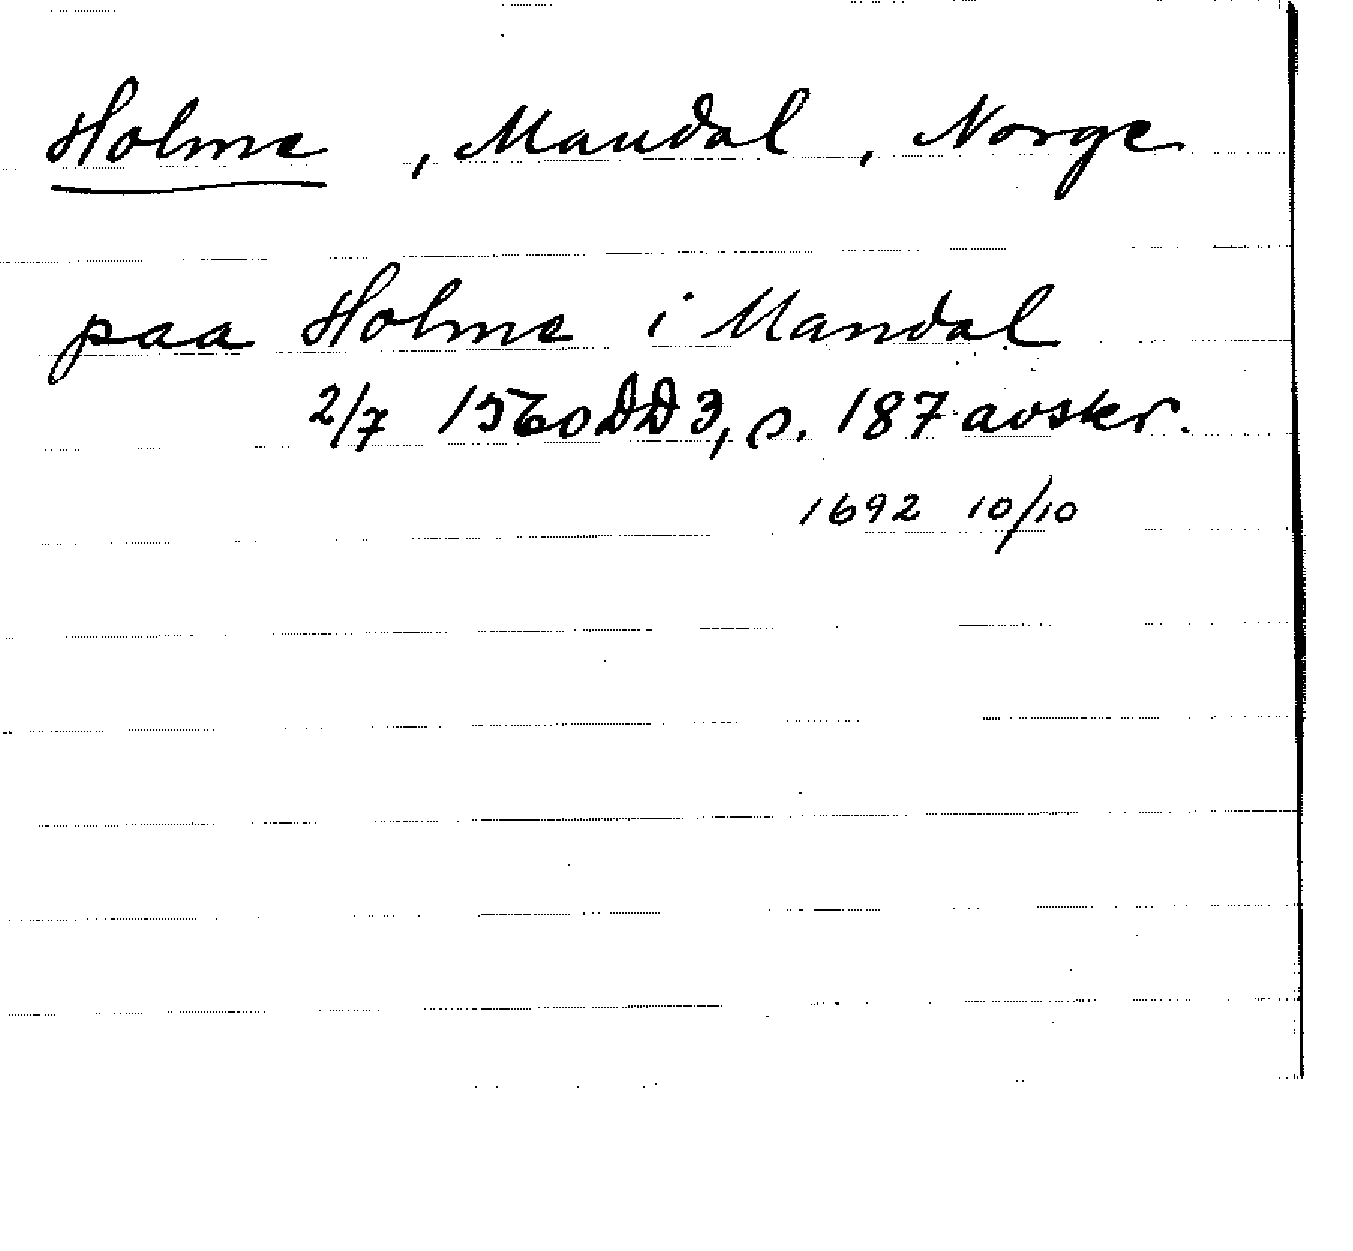 Holme, Mandal, Norge
paa Holme i Mandal
2/7 1560 DD 3, s. 187 avskr.
1692 10/10